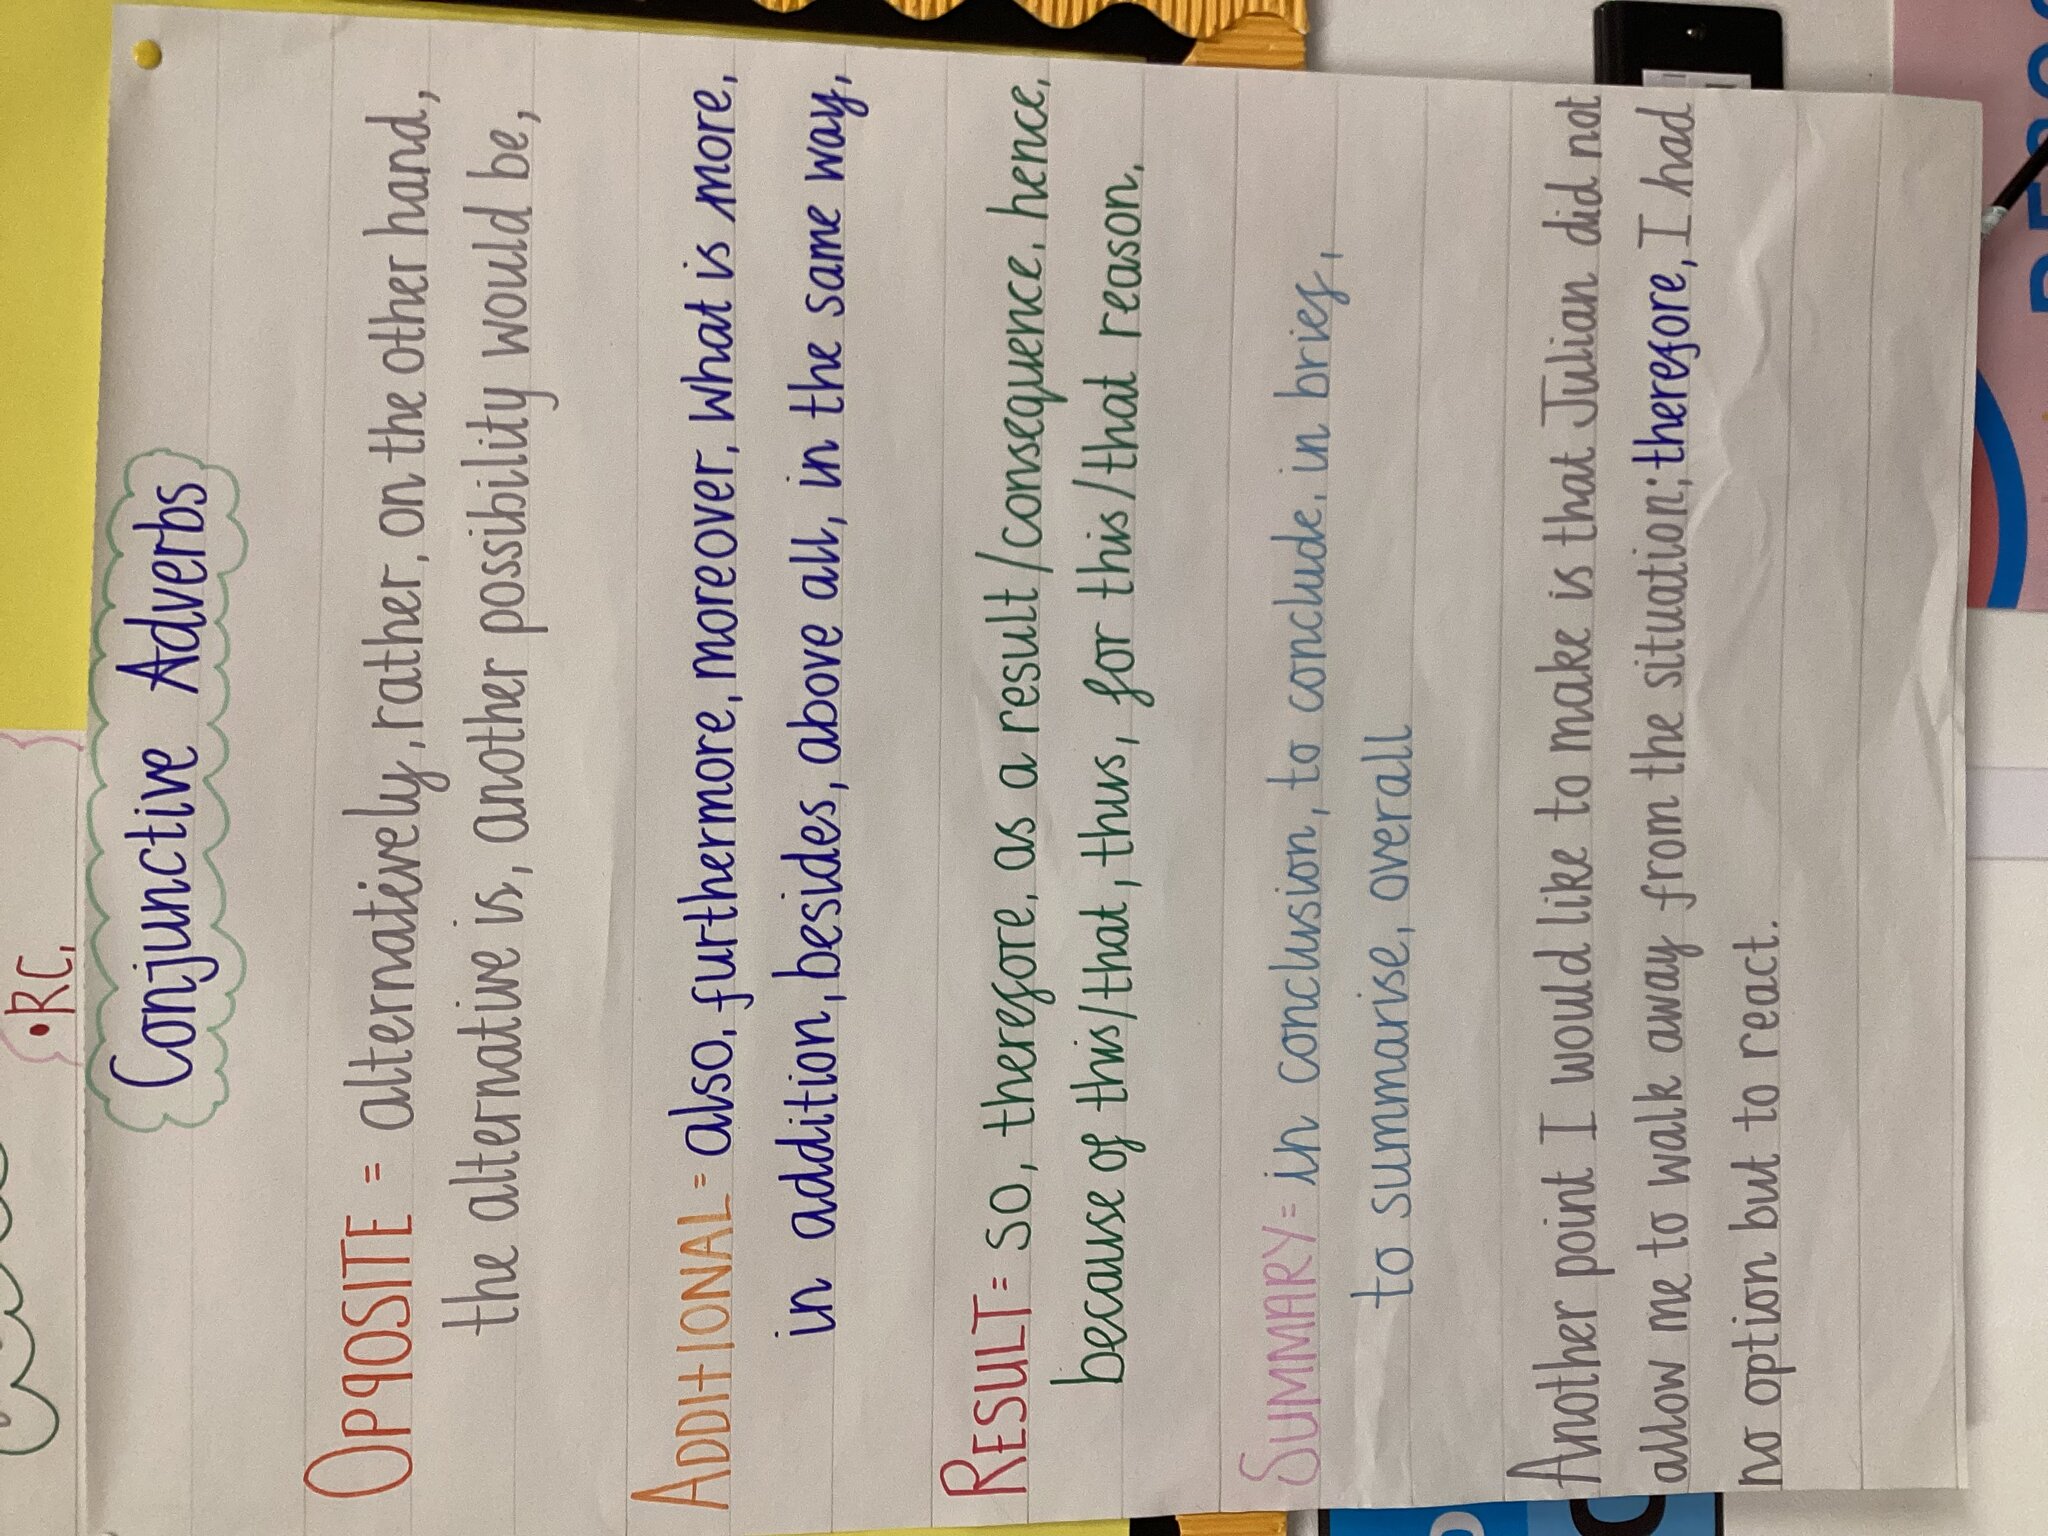 •RC,
Conjunctive Adverbs
OPPOSITE = alternatively, rather, on the other hand,
the alternative is, another possibility would be,
ADDITIONAL = also, furthermore, moreover, what is more,
in addition, besides, above all, in the same way,
RESULT = so, therefore, as a result/consequence, hence,
because of this/that, thus, for this/that reason,
SUMMARY = in conclusion, to conclude, in brief,
to summarise, overall
Another point I would like to make is that Julian did not
allow me to walk away from the situation; therefore, I had
no option but to react.